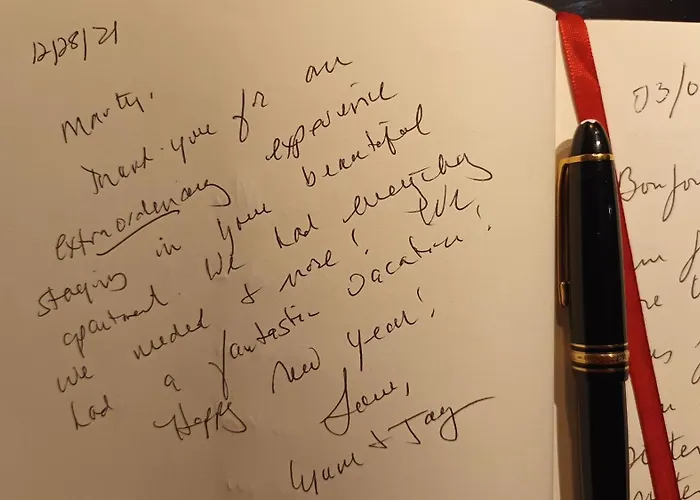 12/28/21
Marty,
Thank you for an
extraordinary experience
staying in your beautiful
apartment. We had everything
we needed & more! We
had a fantastic vacation!
Happy New Year!
Love,
& Jay
03/0
Bonjou